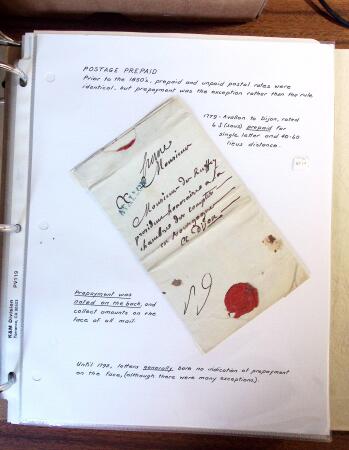 POSTAGE PREPAID
Prior to the 1850's, prepaid and unpaid postal rates were
identical, but prepayment was the exception rather than the rule.
1779 - Avallon to Dijon, rated
6 S (sous) prepaid for
single letter and 40-60
lieus distance.
Monsieur
Monsieur de Ruffey
président honoraire a la
chambre des comptes
en Bourgogne
A Dijon
Prepayment was
noted on the back, and
collect amounts on the
face of all mail.
Until 1792, letters generally bore no indication of prepayment
on the face, (although there were many exceptions).
K&M Division
Torrance, CA 90503
PV119